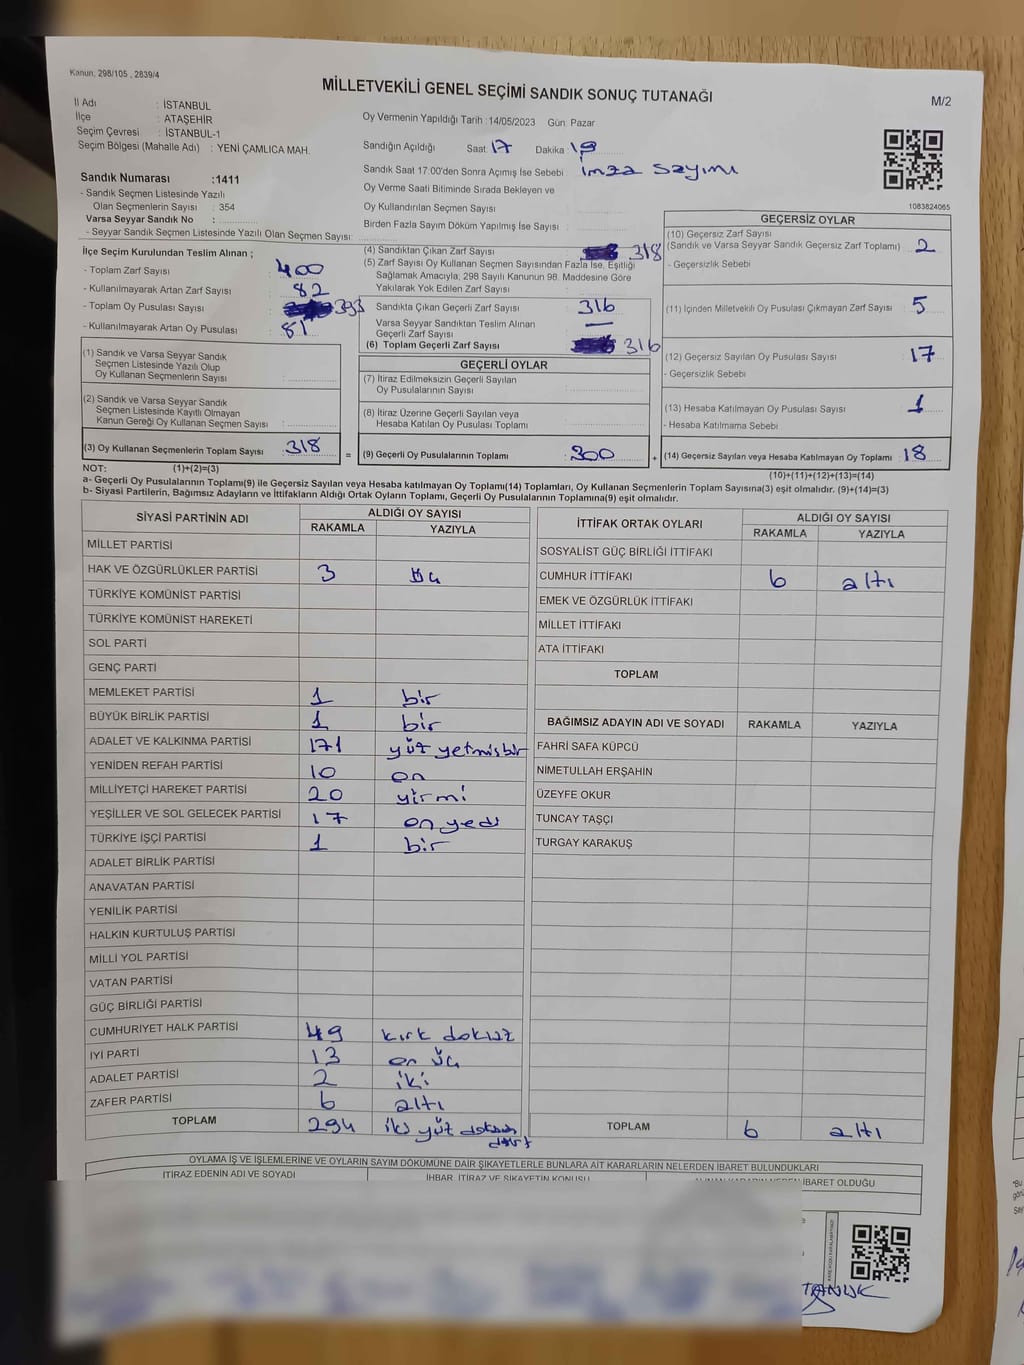 Kanun, 298/105 , 2839/4
MİLLETVEKİLİ GENEL SEÇİMİ SANDIK SONUÇ TUTANAĞI
M/2
İl Adı : İSTANBUL
İlçe : ATAŞEHİR
Seçim Çevresi : İSTANBUL-1
Seçim Bölgesi (Mahalle Adı) : YENİ ÇAMLICA MAH.
Oy Vermenin Yapıldığı Tarih :14/05/2023 Gün: Pazar
Sandığın Açıldığı Saat: 17 Dakika: 19
Sandık Saat 17:00'den Sonra Açımış İse Sebebi : imza sayımı
Oy Verme Saati Bitiminde Sırada Bekleyen ve
Oy Kullandırılan Seçmen Sayısı :
Birden Fazla Sayım Döküm Yapılmış İse Sayısı :
1083824065
Sandık Numarası :1411
- Sandık Seçmen Listesinde Yazılı
Olan Seçmenlerin Sayısı : 354
Varsa Seyyar Sandık No :
- Seyyar Sandık Seçmen Listesinde Yazılı Olan Seçmen Sayısı:
İlçe Seçim Kurulundan Teslim Alınan ;
- Toplam Zarf Sayısı : 400
- Kullanılmayarak Artan Zarf Sayısı : 82
- Toplam Oy Pusulası Sayısı : 393
- Kullanılmayarak Artan Oy Pusulası : 81
(1) Sandık ve Varsa Seyyar Sandık
Seçmen Listesinde Yazılı Olup
Oy Kullanan Seçmenlerin Sayısı :
(2) Sandık ve Varsa Seyyar Sandık
Seçmen Listesinde Kayıtlı Olmayan
Kanun Gereği Oy Kullanan Seçmen Sayısı :
(3) Oy Kullanan Seçmenlerin Toplam Sayısı : 318
(4) Sandıktan Çıkan Zarf Sayısı : 318
(5) Zarf Sayısı Oy Kullanan Seçmen Sayısından Fazla İse, Eşitliği
Sağlamak Amacıyla; 298 Sayılı Kanunun 98. Maddesine Göre
Yakılarak Yok Edilen Zarf Sayısı :
Sandıkta Çıkan Geçerli Zarf Sayısı : 316
Varsa Seyyar Sandıktan Teslim Alınan
Geçerli Zarf Sayısı : —
(6) Toplam Geçerli Zarf Sayısı : 316
GEÇERLİ OYLAR
(7) İtiraz Edilmeksizin Geçerli Sayılan
Oy Pusulalarının Sayısı :
(8) İtiraz Üzerine Geçerli Sayılan veya
Hesaba Katılan Oy Pusulası Toplamı :
= (9) Geçerli Oy Pusulalarının Toplamı : 300
GEÇERSİZ OYLAR
(10) Geçersiz Zarf Sayısı
(Sandık ve Varsa Seyyar Sandık Geçersiz Zarf Toplamı) : 2
- Geçersizlik Sebebi :
(11) İçinden Milletvekili Oy Pusulası Çıkmayan Zarf Sayısı : 5
(12) Geçersiz Sayılan Oy Pusulası Sayısı : 17
- Geçersizlik Sebebi :
(13) Hesaba Katılmayan Oy Pusulası Sayısı : 1
- Hesaba Katılmama Sebebi :
+ (14) Geçersiz Sayılan veya Hesaba Katılmayan Oy Toplamı : 18
NOT: (1)+(2)=(3)
(10)+(11)+(12)+(13)=(14)
a- Geçerli Oy Pusulalarının Toplamı(9) ile Geçersiz Sayılan veya Hesaba katılmayan Oy Toplamı(14) Toplamları, Oy Kullanan Seçmenlerin Toplam Sayısına(3) eşit olmalıdır. (9)+(14)=(3)
b- Siyasi Partilerin, Bağımsız Adayların ve İttifakların Aldığı Ortak Oyların Toplamı, Geçerli Oy Pusulalarının Toplamına(9) eşit olmalıdır.
SİYASİ PARTİNİN ADI ALDIĞI OY SAYISI
RAKAMLA YAZIYLA
MİLLET PARTİSİ
HAK VE ÖZGÜRLÜKLER PARTİSİ 3 üç
TÜRKİYE KOMÜNİST PARTİSİ
TÜRKİYE KOMÜNİST HAREKETİ
SOL PARTİ
GENÇ PARTİ
MEMLEKET PARTİSİ 1 bir
BÜYÜK BİRLİK PARTİSİ 1 bir
ADALET VE KALKINMA PARTİSİ 171 yüz yetmişbir
YENİDEN REFAH PARTİSİ 10 on
MİLLİYETÇİ HAREKET PARTİSİ 20 yirmi
YEŞİLLER VE SOL GELECEK PARTİSİ 17 on yedi
TÜRKİYE İŞÇİ PARTİSİ 1 bir
ADALET BİRLİK PARTİSİ
ANAVATAN PARTİSİ
YENİLİK PARTİSİ
HALKIN KURTULUŞ PARTİSİ
MİLLİ YOL PARTİSİ
VATAN PARTİSİ
GÜÇ BİRLİĞİ PARTİSİ
CUMHURİYET HALK PARTİSİ 49 kırk dokuz
İYİ PARTİ 13 on üç
ADALET PARTİSİ 2 iki
ZAFER PARTİSİ 6 altı
TOPLAM 294 iki yüz doksan dört
İTTİFAK ORTAK OYLARI ALDIĞI OY SAYISI
RAKAMLA YAZIYLA
SOSYALİST GÜÇ BİRLİĞİ İTTİFAKI
CUMHUR İTTİFAKI 6 altı
EMEK VE ÖZGÜRLÜK İTTİFAKI
MİLLET İTTİFAKI
ATA İTTİFAKI
TOPLAM
BAĞIMSIZ ADAYIN ADI VE SOYADI RAKAMLA YAZIYLA
FAHRİ SAFA KÜPCÜ
NİMETULLAH ERŞAHİN
ÜZEYFE OKUR
TUNCAY TAŞÇI
TURGAY KARAKUŞ
TOPLAM 6 altı
OYLAMA İŞ VE İŞLEMLERİNE VE OYLARIN SAYIM DÖKÜMÜNE DAİR ŞİKAYETLERLE BUNLARA AİT KARARLARIN NELERDEN İBARET BULUNDUKLARI
İTİRAZ EDENİN ADI VE SOYADI İHBAR, İTİRAZ VE ŞİKAYETİN KONUSU İBARET OLDUĞU